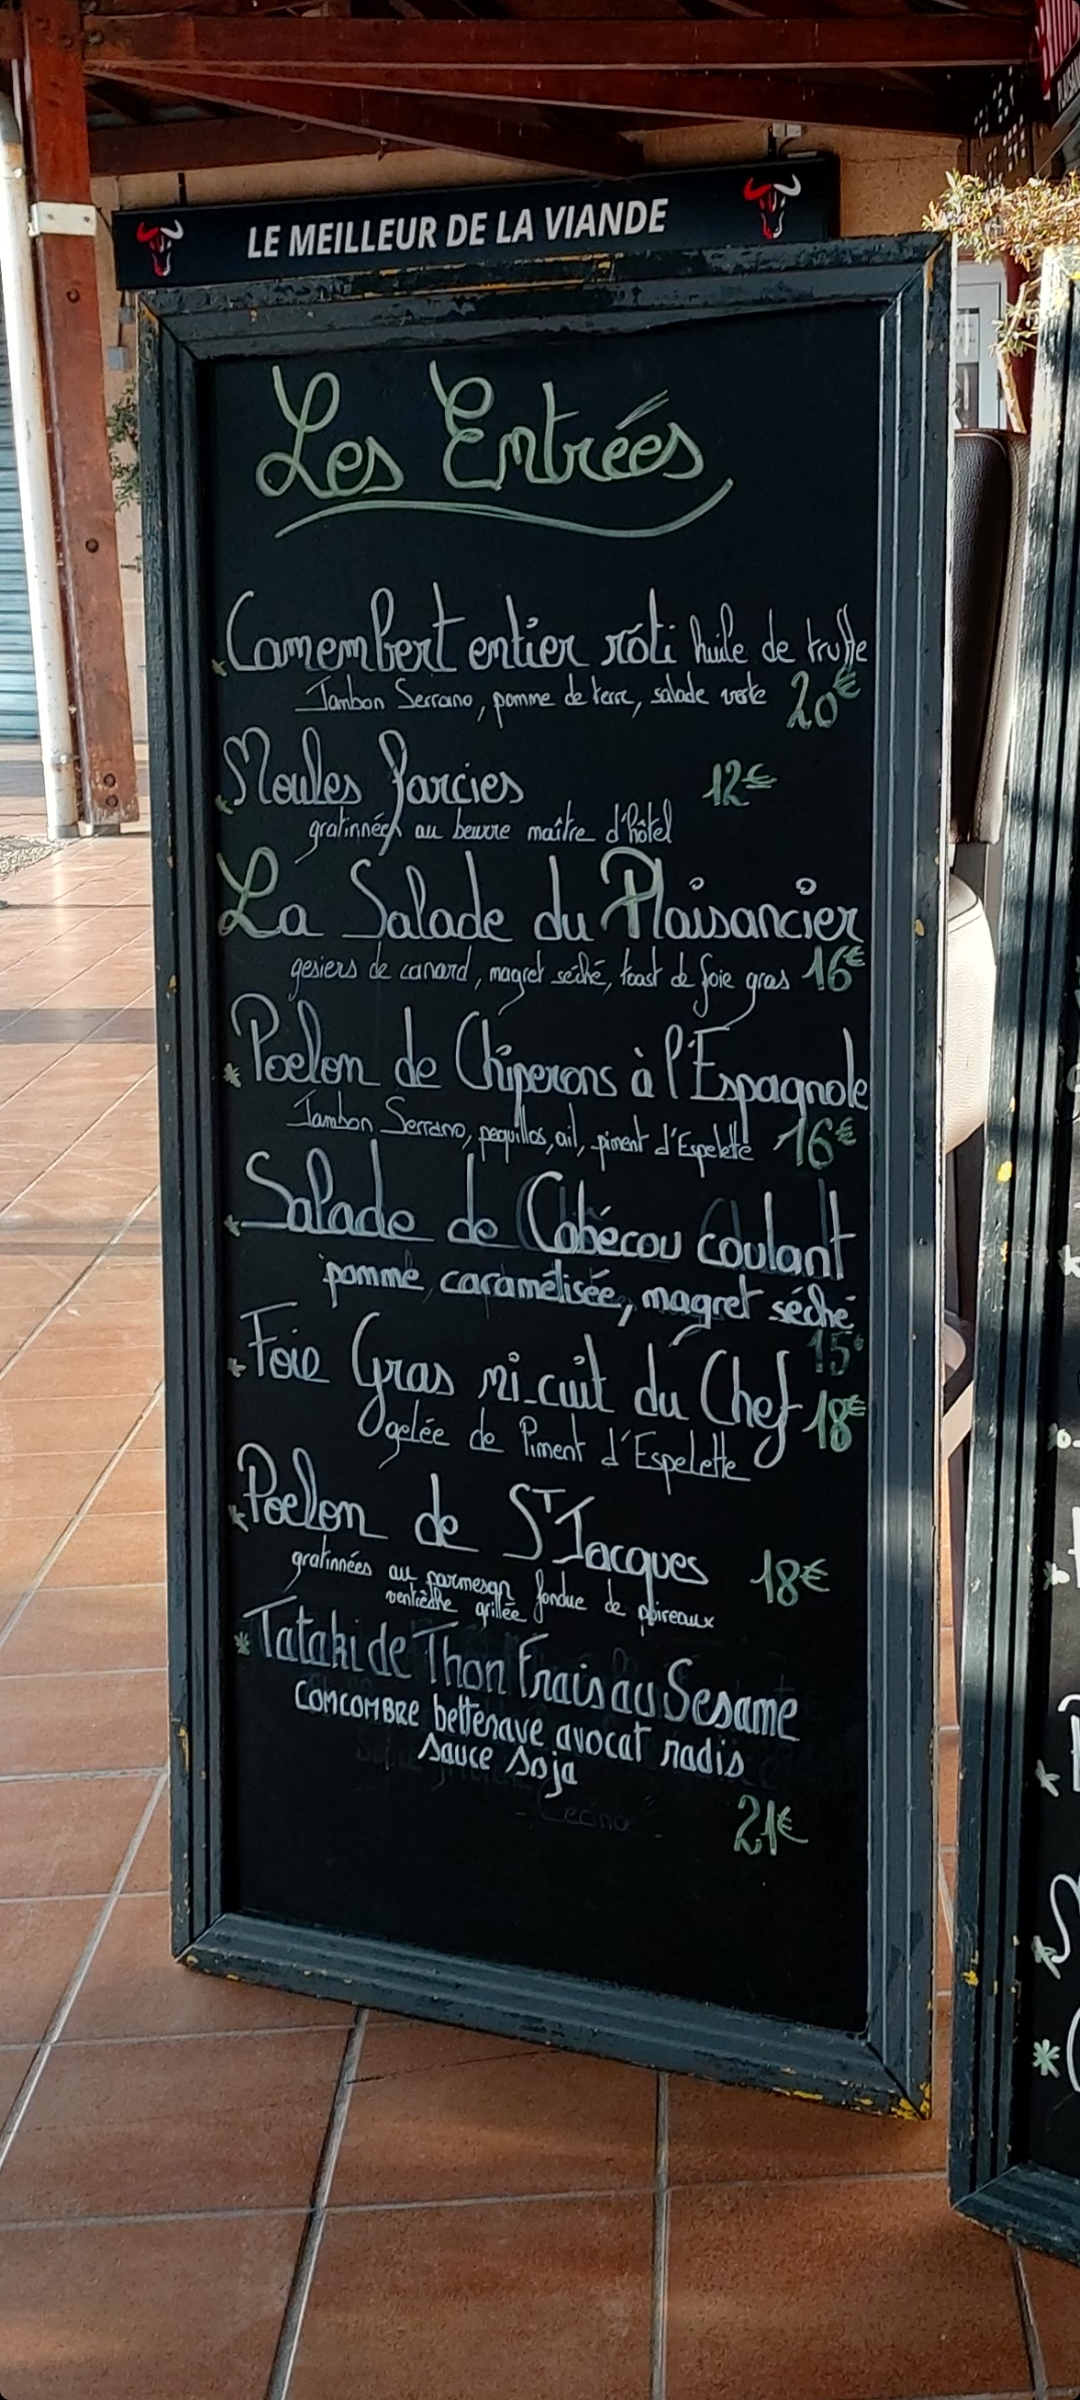 LE MEILLEUR DE LA VIANDE
Les Entrées
* Camembert entier rôti huile de truffe
Jambon Serrano, pomme de terre, salade verte 20€
* Moules farcies 12€
gratinnées au beurre maître d'hôtel
La Salade du Plaisancier
gesiers de canard, magret séché, toast de foie gras 16€
* Poelon de Chiperons à l'Espagnole
Jambon Serrano, pequillos, ail, piment d'Espelette 16€
* Salade de Cabécou Coulant
pomme caramélisée, magret séché
15€
* Foie Gras mi-cuit du Chef 18€
gelée de Piment d'Espelette
* Poelon de ST Jacques 18€
gratinnées au parmesan fondue de poireaux
ventrèche grillée
* Tataki de Thon Frais au Sesame
COMCOMBRE betterave avocat radis
sauce soja
21€